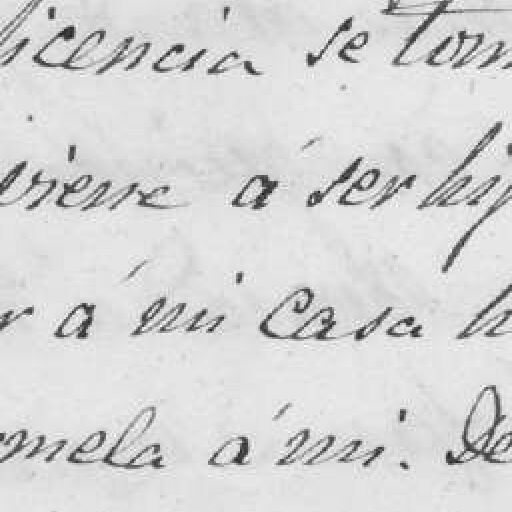 licencia se tom
viene á ser hij
r á mi casa h
mela á mi. De